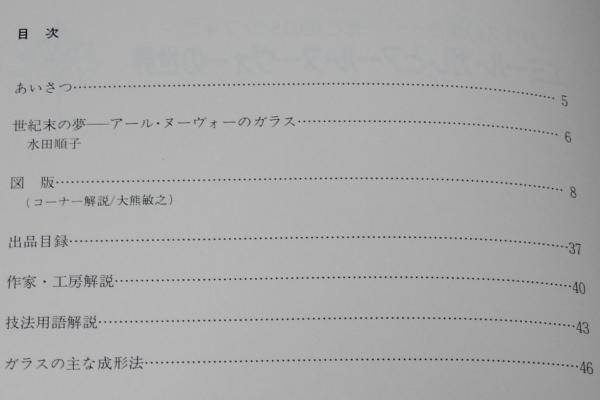 目 次
あいさつ……………………5
世紀末の夢――アール・ヌーヴォーのガラス……………………6
水田順子
図 版……………………8
(コーナー解説/大熊敏之)
出品目録……………………37
作家・工房解説……………………40
技法用語解説……………………43
ガラスの主な成形法……………………46